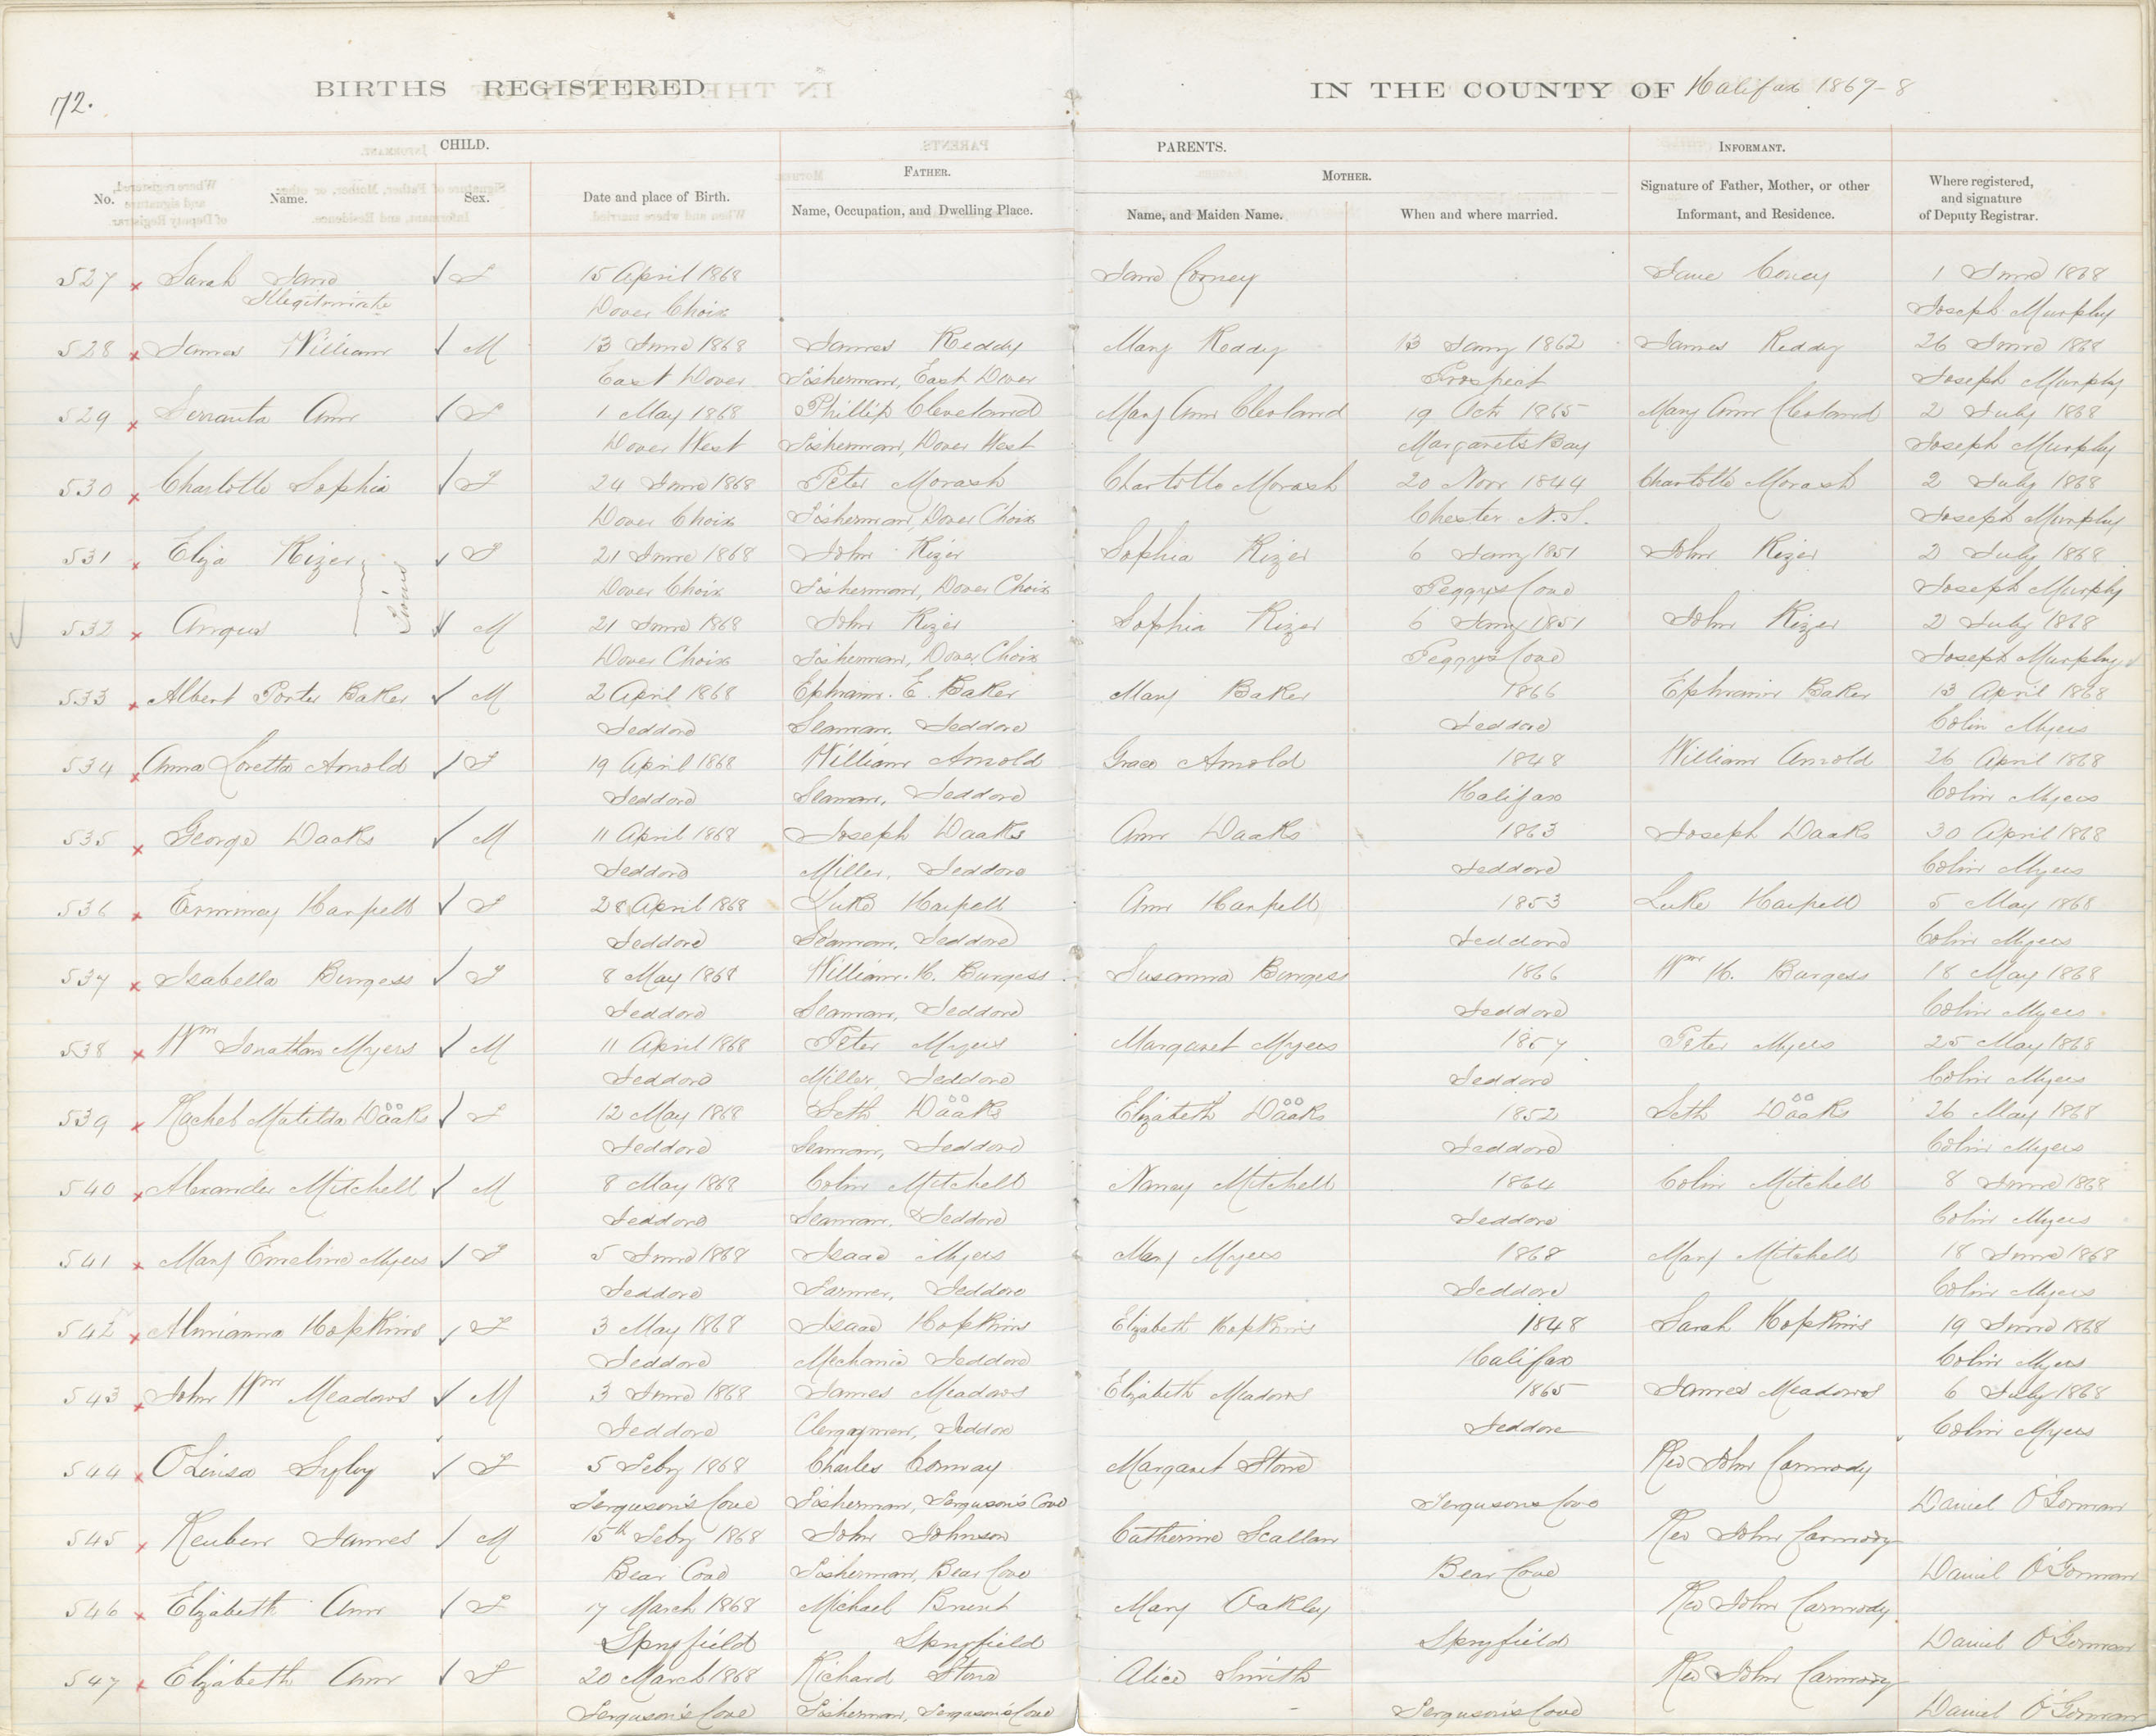 172.
BIRTHS REGISTERED
IN THE COUNTY OF Halifax 1867-8
CHILD.
PARENTS.
INFORMANT.
FATHER.
MOTHER.
No.
Name.
Sex.
Date and place of Birth.
Name, Occupation, and Dwelling Place.
Name, and Maiden Name.
When and where married.
Signature of Father, Mother, or other
Informant, and Residence.
Where registered,
and signature
of Deputy Registrar.
527 x Sarah Jane ✓ F 15 April 1868 Jane Corney Jane Coney 1 June 1868
Illegitimate Dover Choix Joseph Murphy
528 x James William ✓ M 13 June 1868 James Reddy Mary Reddy 13 Jany 1862 James Reddy 26 June 1868
East Dover Fisherman, East Dover Prospect Joseph Murphy
529 x Serranta Ann ✓ F 1 May 1868 Phillip Cleveland Mary Ann Cleveland 19 Octr 1865 Mary Ann Cleveland 2 July 1868
Dover West Fisherman, Dover West Margarets Bay Joseph Murphy
530 x Charlotte Sophia ✓ F 24 June 1868 Peter Morash Charlotte Morash 20 Novr 1844 Charlotte Morash 2 July 1868
Dover Choix Fisherman, Dover Choix Chester N.S. Joseph Murphy
531 x Eliza Kizer ✓ F 21 June 1868 John Kizer Sophia Kizer 6 Jany 1851 John Kizer 2 July 1868
Twins
Dover Choix Fisherman, Dover Choix Peggys Cove Joseph Murphy
532 x Angus ✓ M 21 June 1868 John Kizer Sophia Kizer 6 Jany 1851 John Kizer 2 July 1868
Dover Choix Fisherman, Dover Choix Peggy's Cove Joseph Murphy
533 x Albert Porter Baker ✓ M 2 April 1868 Ephraim. E. Baker Mary Baker 1866 Ephraim Baker 13 April 1868
Jeddore Seaman, Jeddore Jeddore Colin Myers
534 x Anna Loretta Arnold ✓ F 19 April 1868 William Arnold Grace Arnold 1848 William Arnold 26 April 1868
Jeddore Seaman, Jeddore Halifax Colin Myers
535 x George Daaks ✓ M 11 April 1868 Joseph Daaks Ann Daaks 1863 Joseph Daaks 30 April 1868
Jeddore Miller, Jeddore Jeddore Colin Myers
536 x Erminey Harpell ✓ F 28 April 1868 Luke Harpell Ann Harpell 1853 Luke Harpell 5 May 1868
Jeddore Seaman, Jeddore Jeddore Colin Myers
537 x Isabella Burgess ✓ F 8 May 1868 William. H. Burgess Susanna Burgess 1866 Wm H. Burgess 18 May 1868
Jeddore Seaman, Jeddore Jeddore Colin Myers
538 x Wm Jonathan Myers ✓ M 11 April 1868 Peter Myers Margaret Myers 1857 Peter Myers 25 May 1868
Jeddore Miller, Jeddore Jeddore Colin Myers
539 x Rachel Matilda Dååks ✓ F 12 May 1868 Seth Dååks Elizabeth Dååks 1852 Seth Dååks 26 May 1868
Jeddore Seaman, Jeddore Jeddore Colin Myers
540 x Alexander Mitchell ✓ M 8 May 1868 Colin Mitchell Nancy Mitchell 1864 Colin Mitchell 8 June 1868
Jeddore Seaman, Jeddore Jeddore Colin Myers
541 x Mary Emeline Myers ✓ F 5 June 1868 Isaac Myers Mary Myers 1868 Mary Mitchell 18 June 1868
Jeddore Farmer, Jeddore Jeddore Colin Myers
542 x Almianna Hopkins ✓ F 3 May 1868 Isaac Hopkins Elizabeth Hopkins 1848 Sarah Hopkins 19 June 1868
Jeddore Mechanic Jeddore Halifax Colin Myers
543 x John Wm Meadows ✓ M 3 June 1868 James Meadows Elizabeth Meadows 1865 James Meadows 6 July 1868
Jeddore Clergyman, Jeddore Jeddore Colin Myers
544 x ✓ F 5 Feby 1868 Charles Conway Margaret Stone Rev John Carmody
Ferguson's Cove Fisherman, Ferguson's Cove Fergusons Cove Daniel O'Gorman
545 x Reuben James ✓ M 15th Feby 1868 John Johnson Catherine Scallan Rev John Carmody
Bear Cove Fisherman, Bear Cove Bear Cove Daniel O'Gorman
546 x Elizabeth Ann ✓ F 17 March 1868 Michael Mary Oakley Rev John Carmody
Spryfield Spryfield Spryfield Daniel O'Gorman
547 x Elizabeth Ann ✓ F 20 March 1868 Richard Stone Alice Smith Rev John Carmody
Ferguson's Cove Fisherman, Ferguson's Cove Ferguson's Cove Daniel O'Gorman